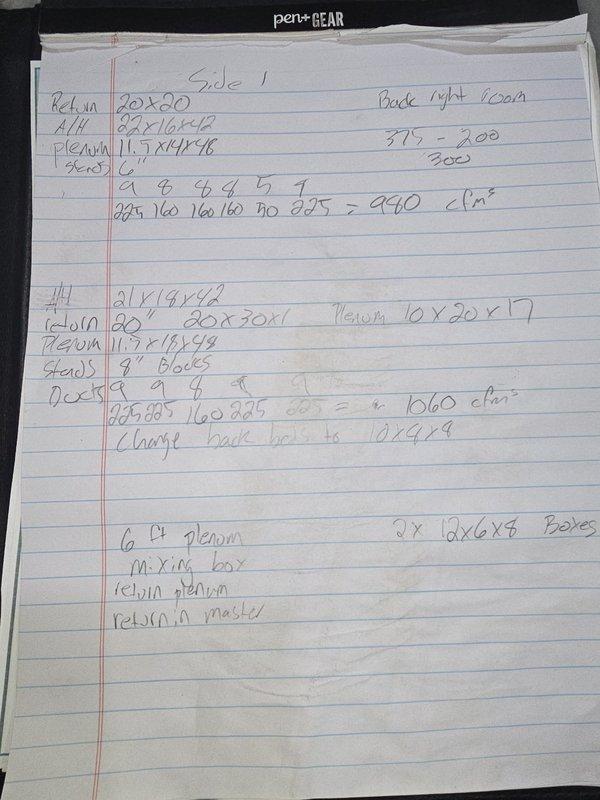 pen+GEAR
Side 1
Return 20x20 Back right room
A/H 22x16x42
Plenum 11.5x14x48 375 - 200
Stands 6" 300
9 8 8 8 5 9
225 160 160 160 50 225 = 980 cfm's
A/H 21x18x42
return 20" 20x30x1 Plenum 10x20x17
Plenum 11.5x18x48
Stands 8" Blocks
Ducts 9 9 8 9 9
225 225 160 225 225 = 1060 cfm's
Change back to 10x8x8
6 ft plenum 2x 12x6x8 Boxes
mixing box
return plenum
return in master